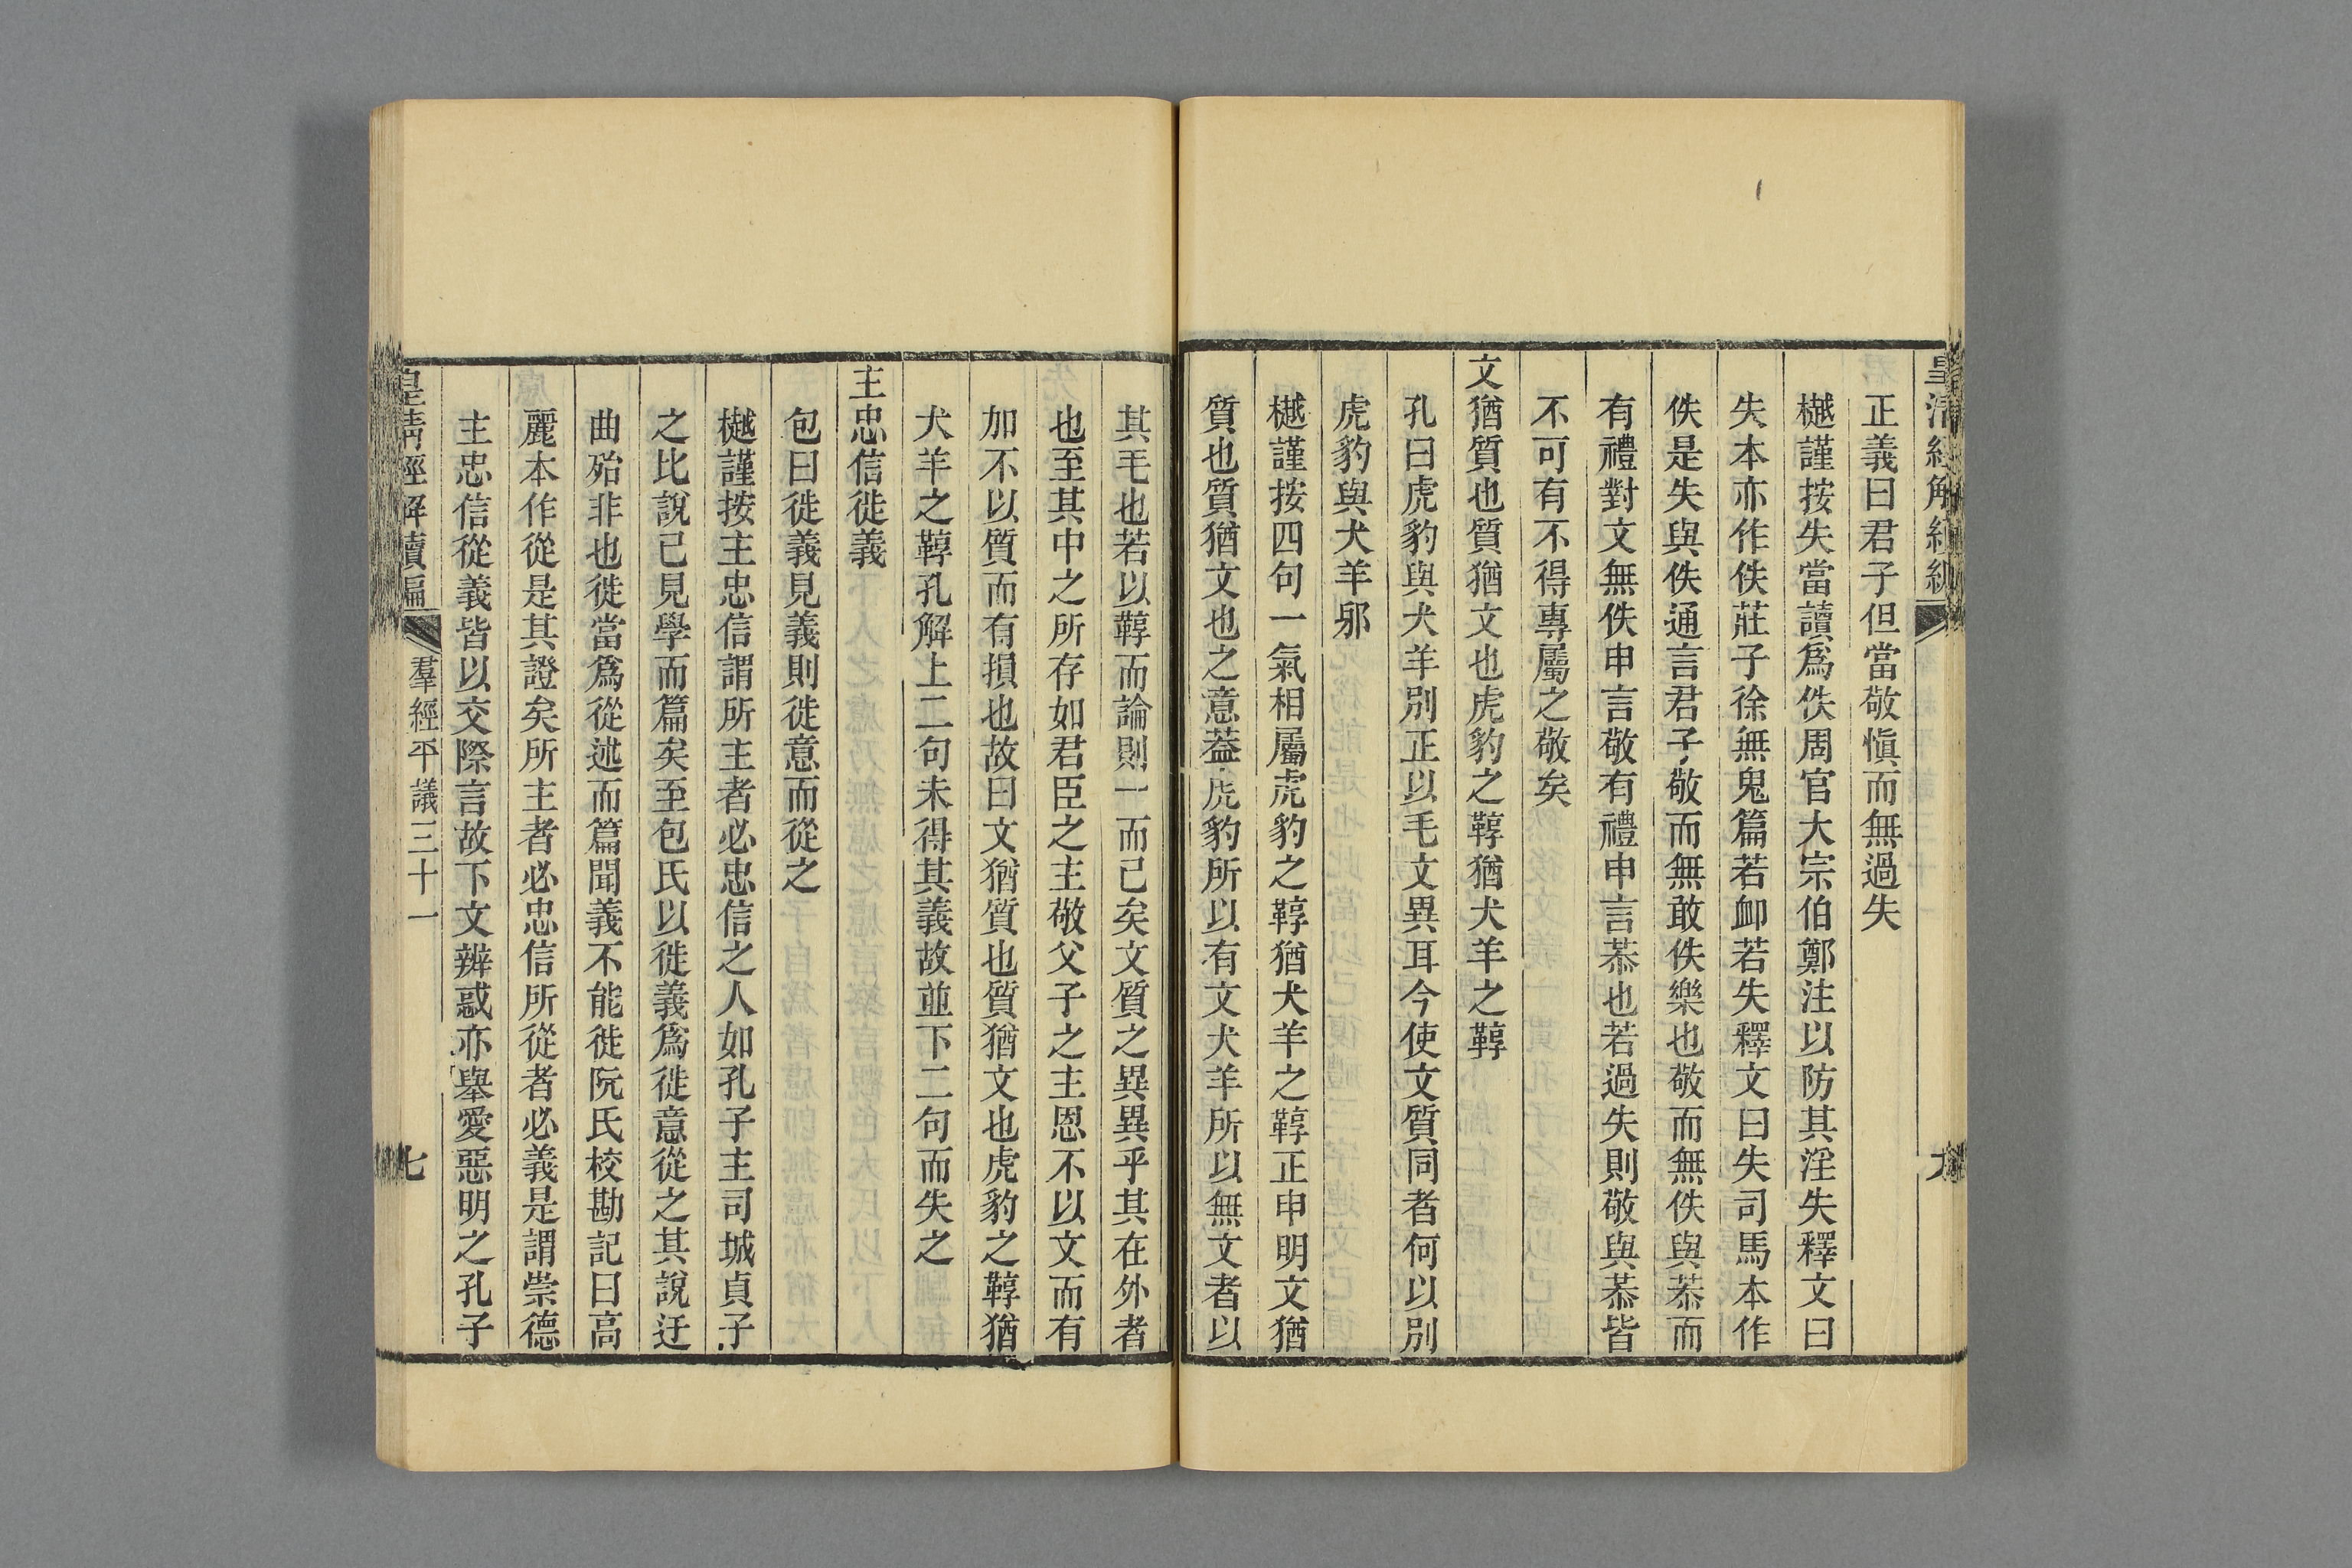 正義曰君子但當敬愼而無過失
樾謹按失當讀爲佚周官大宗伯鄭注以防其淫失釋文曰
失本亦作佚莊子徐無鬼篇若卹若失釋文曰失司馬本作
佚是失與佚通言君子敬而無敢佚樂也敬而無佚與恭而
有禮對文無佚申言敬有禮申言恭也若過失則敬與恭皆
不可有不得專屬之敬矣
文猶質也質猶文也虎豹之鞟猶犬羊之鞟
孔曰虎豹與犬羊別正以毛文異耳今使文質同者何以別
虎豹與犬羊邪
樾謹按四句一氣相屬虎豹之鞟猶犬羊之鞟正申明文猶
質也質猶文也之意葢虎豹所以有文犬羊所以無文者以
其毛也若以鞟而論則一而已矣文質之異異乎其在外者
也至其中之所存如君臣之主敬父子之主恩不以文而有
加不以質而有損也故曰文猶質也質猶文也虎豹之鞟猶
犬羊之鞟孔解上二句未得其義故並下二句而失之
主忠信徙義
包曰徙義見義則徙意而從之
樾謹按主忠信謂所主者必忠信之人如孔子主司城貞子
之比說已見學而篇矣至包氏以徙義爲徙意從之其說迂
曲殆非也徙當爲從述而篇聞義不能徙阮氏校勘記曰高
麗本作從是其證矣所主者必忠信所從者必義是謂崇德
主忠信從義皆以交際言故下文辨惑亦舉愛惡明之孔子
皇清經解續編
羣經平議三十一
七